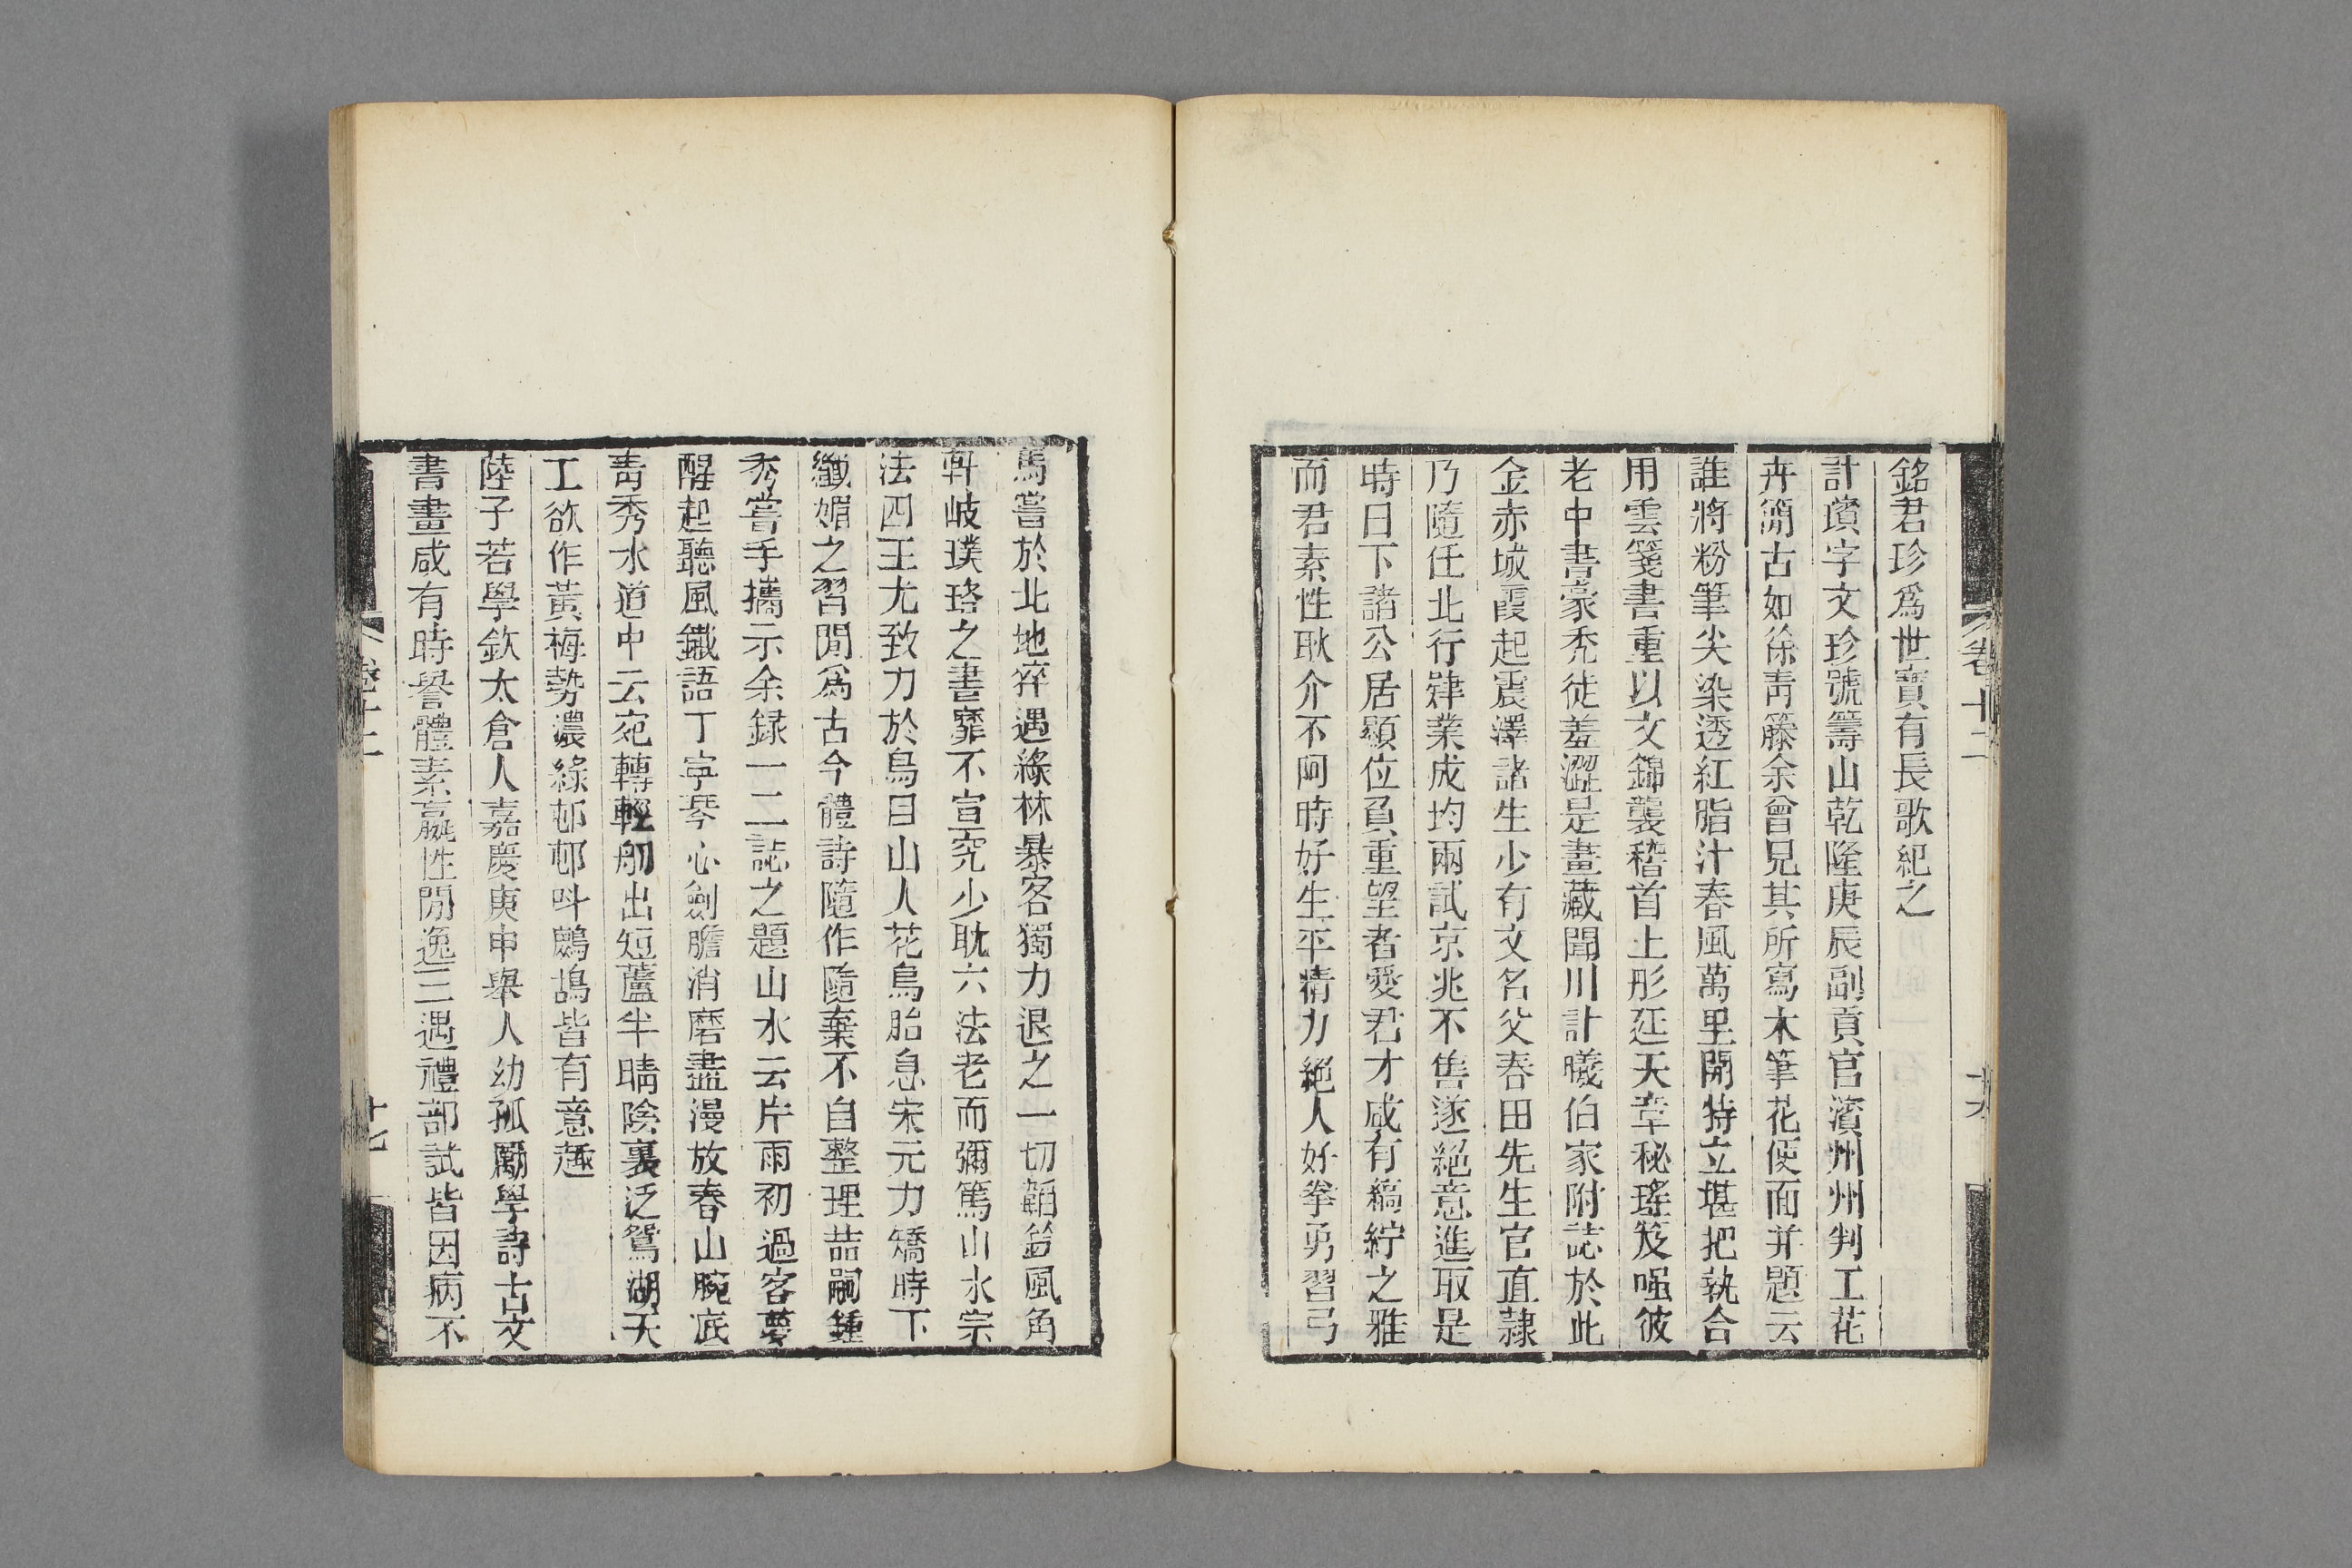 銘君珍爲世寶有長歌紀之
計璸字文珍號籌山乾隆庚辰副貢官濱州州判工花
卉簡古如徐靑籐余曾見其所寫木筆花便面并題云
誰將粉筆尖染透紅脂汁春風萬里開特立堪把執合
用雲箋書重以文錦襲稽首上彤廷天章秘瑤笈嗤彼
老中書豪禿徒羞澀是畫藏聞川計曦伯家附誌於此
金赤城霞起震澤諸生少有文名父春田先生官直隷
乃隨任北行肄業成均兩試京兆不售遂絕意進取是
時日下諸公居顯位負重望者愛君才咸有縞紵之雅
而君素性耿介不阿時好生平精力絕人好拳勇習弓
馬嘗於北地猝遇綠林暴客獨力退之一切韜鈐風角
軒岐璞珞之書靡不宣究少耽六法老而彌篤山水宗
法四王尤致力於烏目山人花鳥胎息宋元力矯時下
纖媚之習閒爲古今體詩隨作隨棄不自整理喆嗣鍾
秀嘗手攜示余録一二誌之題山水云片雨初過客夢
醒起聽風鐵語丁寧琴心劍膽消磨盡漫放春山腕底
靑秀水道中云宛轉輕舠出短蘆半晴陰裏泛鴛湖天
工欲作黃梅勢濃綠邨邨呌鷓鴣皆有意趣
陸子若學欽太倉人嘉慶庚申舉人幼孤勵學詩古文
書畫咸有時譽體素羸性閒逸三遇禮部試皆因病不
卷十二
十六
卷十二
十七